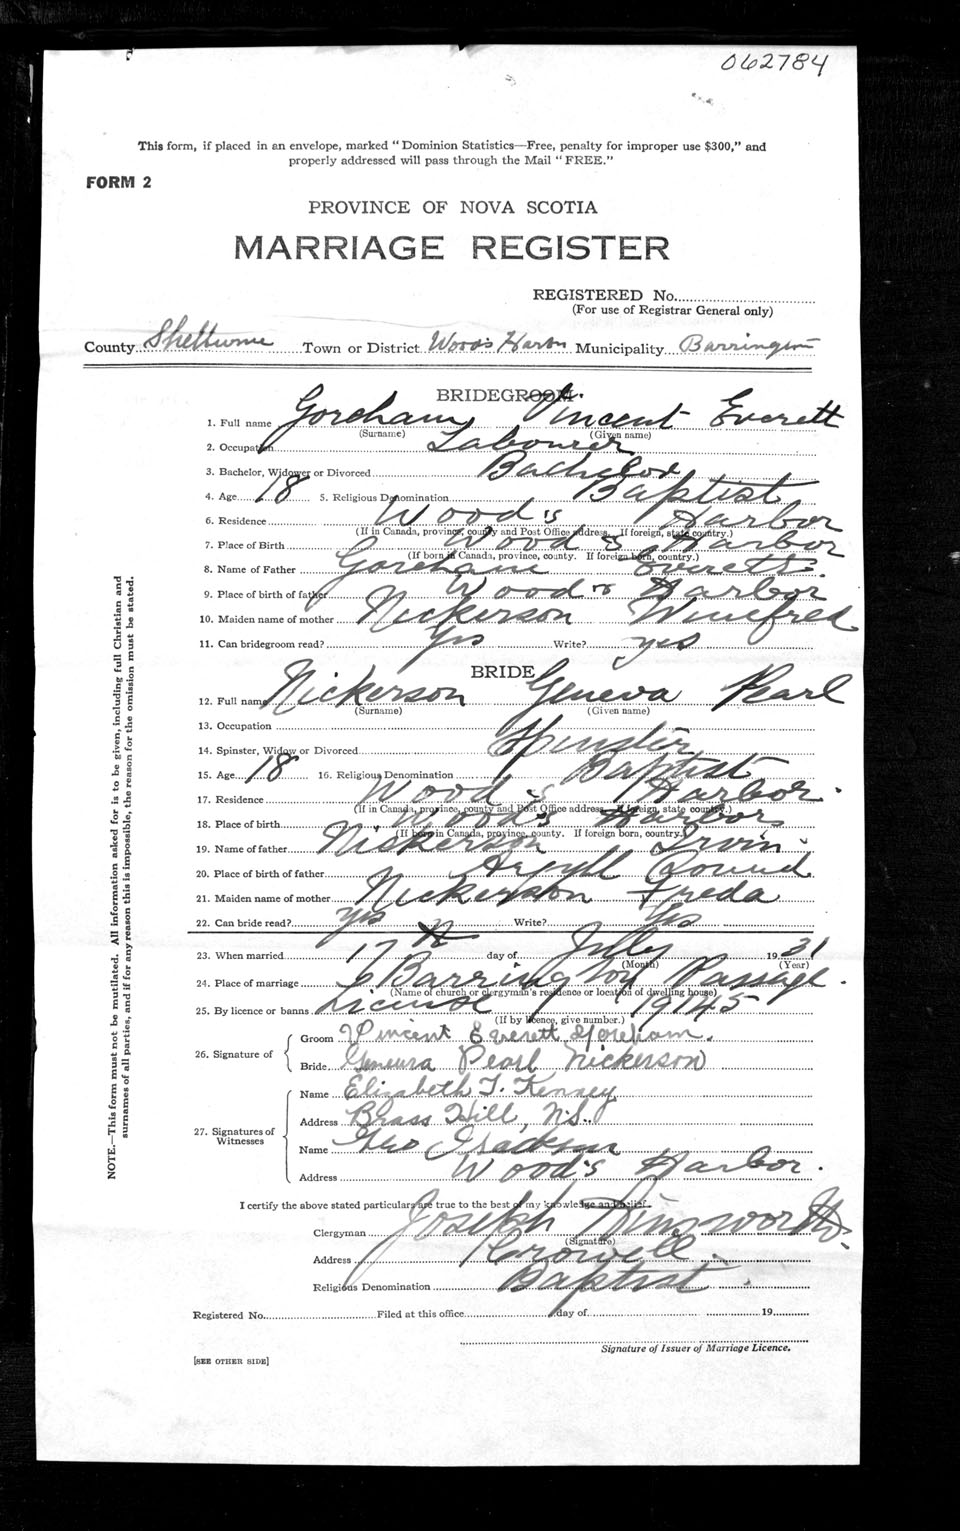 062784
This form, if placed in an envelope, marked "Dominion Statistics—Free, penalty for improper use $300," and
properly addressed will pass through the Mail "FREE."
FORM 2
PROVINCE OF NOVA SCOTIA
MARRIAGE REGISTER
REGISTERED No.
(For use of Registrar General only)
County Shelburne Town or District Wood's Harbor Municipality Barrington
BRIDEGROOM.
1. Full name Goreham Vincent Everett
(Surname) (Given name)
2. Occupation Labourer
3. Bachelor, Widower or Divorced Bachelor
4. Age 18 5. Religious Denomination Baptist
6. Residence Wood's Harbor
(If in Canada, province, county and Post Office address. If foreign, state country.)
7. Place of Birth Wood's Harbor
(If born in Canada, province, county. If foreign born, country.)
8. Name of Father Goreham Everett.
9. Place of birth of father Wood's Harbor
10. Maiden name of mother Nickerson Winefred
11. Can bridegroom read? Yes Write? yes
BRIDE
12. Full name Nickerson Geneva Pearl
(Surname) (Given name)
13. Occupation
14. Spinster, Widow or Divorced Spinster
15. Age 18 16. Religious Denomination Baptist
17. Residence Wood's Harbor.
(If in Canada, province, county and Post Office address. If foreign, state country.)
18. Place of birth Wood's Harbor
(If born in Canada, province, county. If foreign born, country.)
19. Name of father Nickerson Irvin
20. Place of birth of father Argyll Sound
21. Maiden name of mother Nickerson Freda
22. Can bride read? yes Write? Yes
23. When married 17th day of July 1931
(Month) (Year)
24. Place of marriage Barrington Passage.
(Name of church or clergyman's residence or location of dwelling house)
25. By licence or banns License 19145
(If by licence, give number.)
26. Signature of
Groom Vincent Everett Goreham.
Bride Geneva Pearl Nickerson
27. Signatures of Witnesses
Name Elizabeth T. Kenney
Address Brass Hill, N.S.
Name Geo
Address Wood's Harbor.
I certify the above stated particulars are true to the best of my knowledge and belief.
Clergyman Joseph
(Signature)
Address Crowell.
Religious Denomination Baptist.
Registered No. Filed at this office day of 19
Signature of Issuer of Marriage Licence.
[SEE OTHER SIDE]
NOTE.—This form must not be mutilated. All information asked for is to be given, including full Christian and
surnames of all parties, and if for any reason this is impossible, the reason for the omission must be stated.